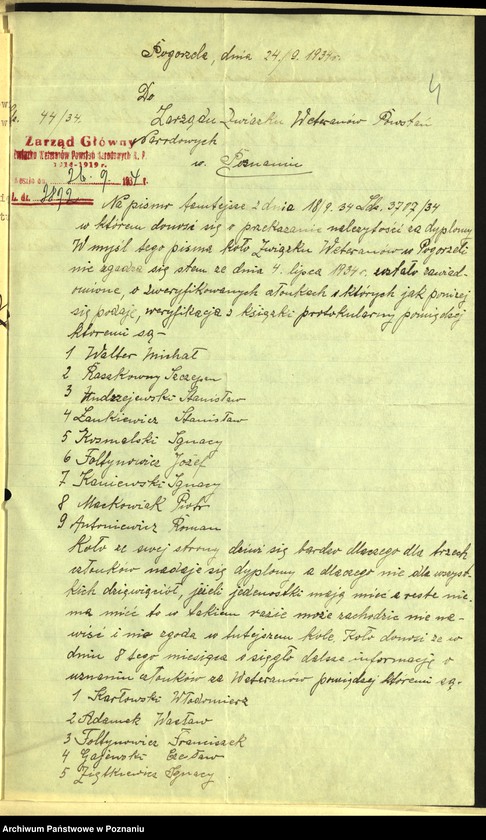 Pogorzela, dnia 24/9. 1934 r.
4
Do
44/34.
Zarządu Związku Weteranów Powstań
Narodowych
w Poznaniu
Zarząd Główny
Związku Weteranów Powstań Narodowych R. P.
1914-1919 r.
26. 9. 1934 r.
L. dz. 2892
Na pismo tamtejsze z dnia 18/9. 34 Ldz. 3787/34
w którem donosi się o przekazanie należytość za dyplomy
W myśl tego pisma Koło Związku Weteranów w Pogorzeli
nie zgadza się stem ze dnia 4. lipca 1934 r. zostało zawiad-
omione, o zweryfikowanych członkach z których jak poniżej
się podaje, weryfikacja z książki protokularny pomiędzy
ktoremi są-
1 Walter Michał
2 Raszkowny Szczepan
3 Andrzejewski Stanisław
4 Lankiewicz Stanisław
5 Kozmalski Ignacy
6 Foltynowicz Józef
7 Kaniewski Ignacy
8 Maćkowiak Piotr
9 Antoniewicz Roman
Koło ze swej strony dziwi się bardzo dlaczego dla trzech
członków nadaje się dyplomy a dlaczego nie dla wszyst-
kich dziewięciół, jeżeli jedenostki mają mieć a reszta nie-
ma mieć to w takiem razie może zachodzić nie na-
wiść i nie zgoda w tutejszem kole. Koło donosi ze w
dniu 8 tego miesiąca sięgło dalsze informację o
uznaniu członków za Weteranów pomiędzy ktoremi są-
1 Karłowski Włodzimierz
2 Adamek Wacław
3 Foltynowicz Franciszek
4 Gajewski Czesław
5 Ziętkiewicz Ignacy
Archiwum Państwowe w Poznaniu